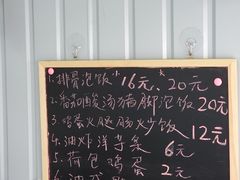 1. 排骨泡饭 小16元、20元
2. 番茄酸汤猪脚泡饭20元
3. 鸡蛋火腿肠炒饭 12元
4. 油炸洋芋条 6元
5. 荷包鸡蛋 2元
6. 油炸